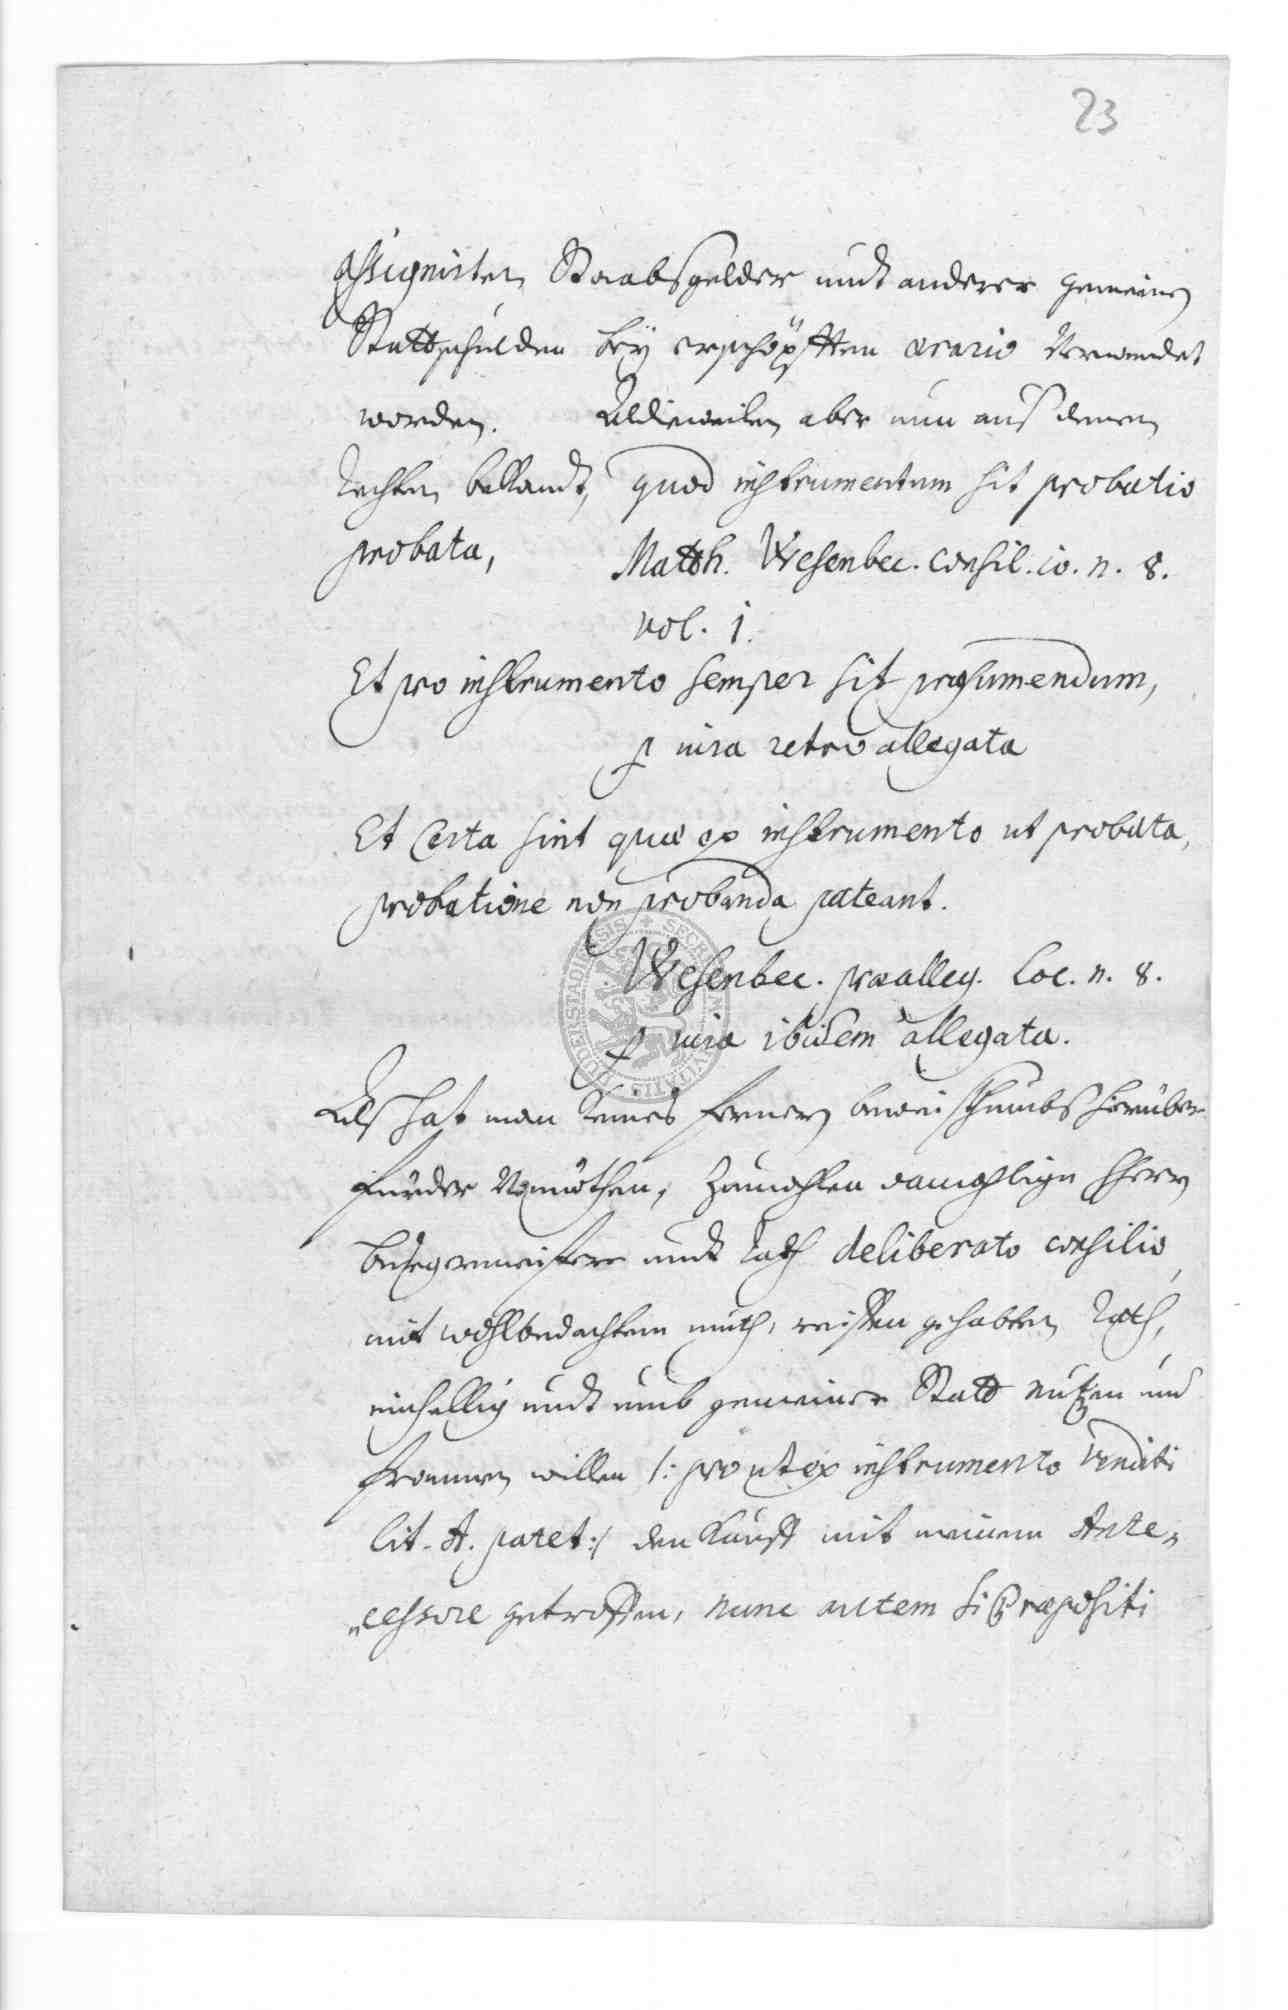 23
assignirten Staabsgelder undt anderer gemeinen
Stattschulden beÿ erschöpfften ærario verwendet
worden. Aldieweilen aber nun auß denen
Rechten bekandt, quod instrumentum sit probatio
probata, Matth. Wesenbec. consil. io. n. 8.
vol. i.
Et pro instrumento semper sit præsumendum,
p iura retro allegata
Et Certa sint quæ ex instrumento ut probata,
probatione non probanda pateant.
Wesenbec. præalleg. Loc. n. 8.
p iura ibidem allegata.
Als hat man keines fernern beweißthumbs hierüber
fürder vonnöthen, zumahlen damahlige Herrn
Bürgermeistere undt Rath deliberato consilio,
mit wohlbedachtem muth, reiffen gehabten Rath,
einhellig undt umb gemeiner Statt nutzen und
frommen willen /: prout ex instrumento venditi
lit. A. patet :/ den Kauff mit meinem Ante-
cessore getroffen, nunc autem si Præpositi
SECRETUM CIVITATIS DUDERSTADIENSIS